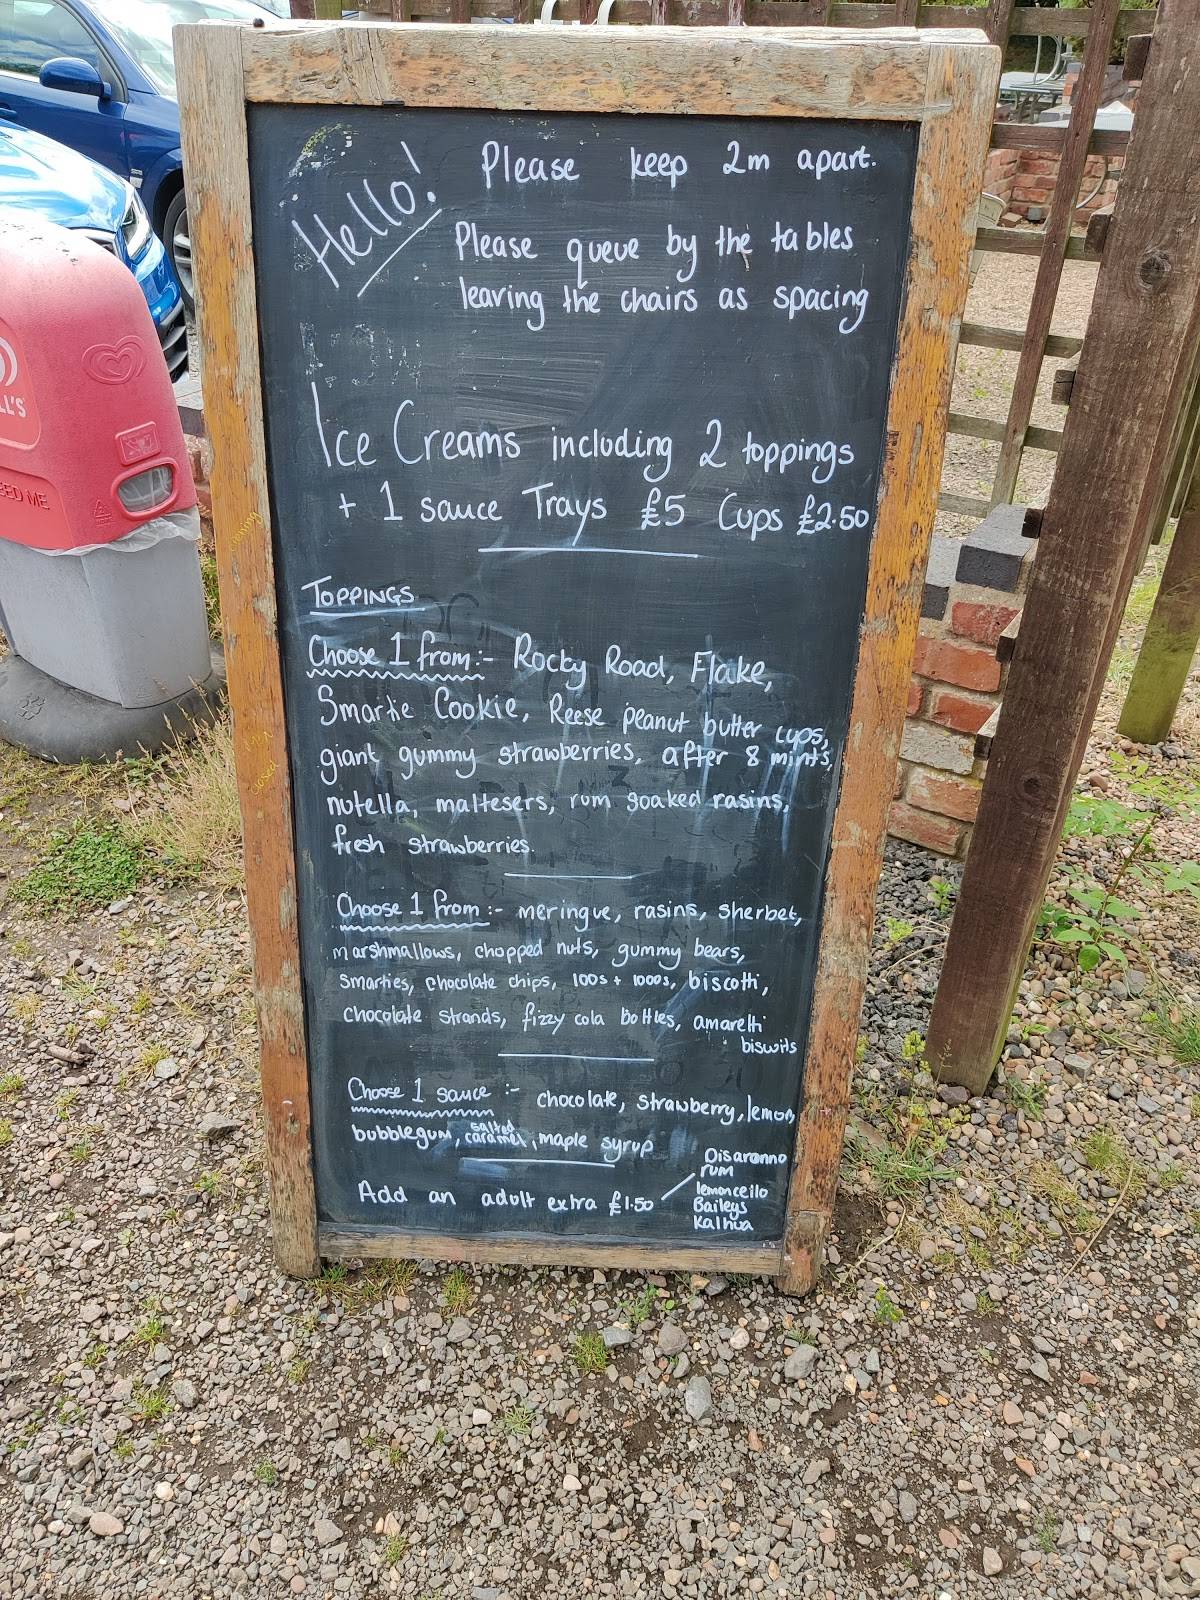 Hello!
Please keep 2m apart.
Please queue by the tables
leaving the chairs as spacing
Ice Creams including 2 toppings
+ 1 sauce Trays £5 Cups £2.50
TOPPINGS
Choose 1 from:- Rocky Road, Flake,
Smartie Cookie, Reese peanut butter cups,
giant gummy strawberries, after 8 mints,
nutella, maltesers, rum soaked rasins,
fresh strawberries.
Choose 1 from:- meringue, rasins, sherbet,
marshmallows, chopped nuts, gummy bears,
Smarties, chocolate chips, 100s + 1000s, biscotti,
chocolate strands, fizzy cola bottles, amaretti
biscuits
Choose 1 sauce :- chocolate, strawberry, lemon,
bubblegum, salted caramel, maple syrup
Add an adult extra £1.50
Disaronno
rum
lemoncello
Baileys
Kalhua
LL'S
EED ME
closed